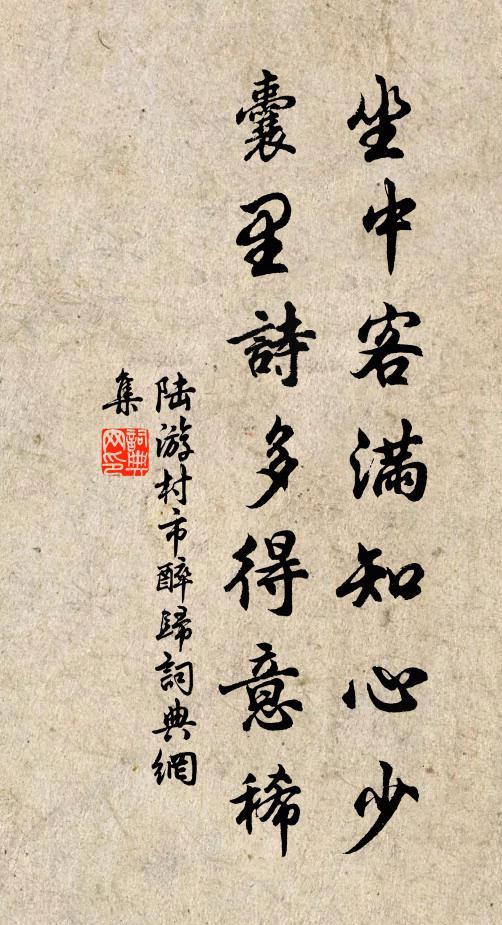 坐中客满知心少
囊里詩多得意稀
陆游村市醉歸詞典網
集
詞典
网印